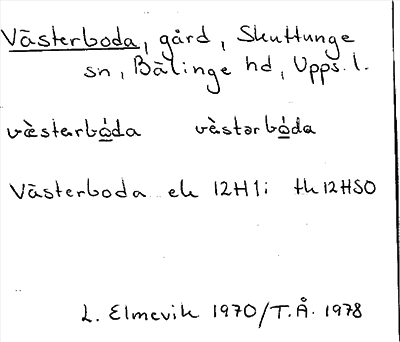 Västerboda, gård, Skuttunge
sn, Bälinge hd, Upps. l.
vèstarbó̲da vèstərbó̲da
Västerboda ek 12H1i tk 12HSO
L. Elmevik 1970/T.Å. 1978